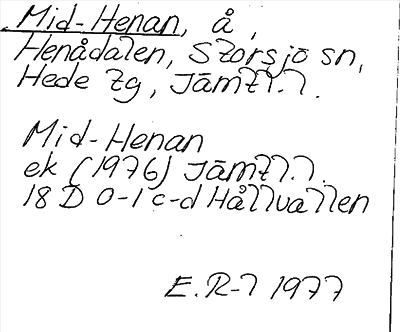 Mid-Henan, å,
Henådalen, Storsjö sn,
Hede tg, Jämtl.l.
Mid-Henan
ek (1976) Jämtl.l.
18 D 0-1 c-d Hållvallen
E.R-l 1977